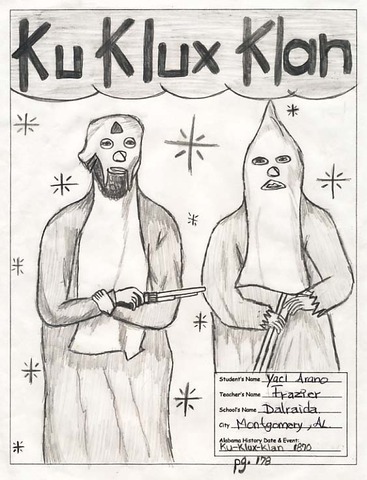 Ku Klux Klan
Student's Name Yael Arano
Teacher's Name Frazier
School's Name Dalraida
City Montgomery, AL
Alabama History Date & Event:
Ku-Klux-Klan 1870
pg. 178